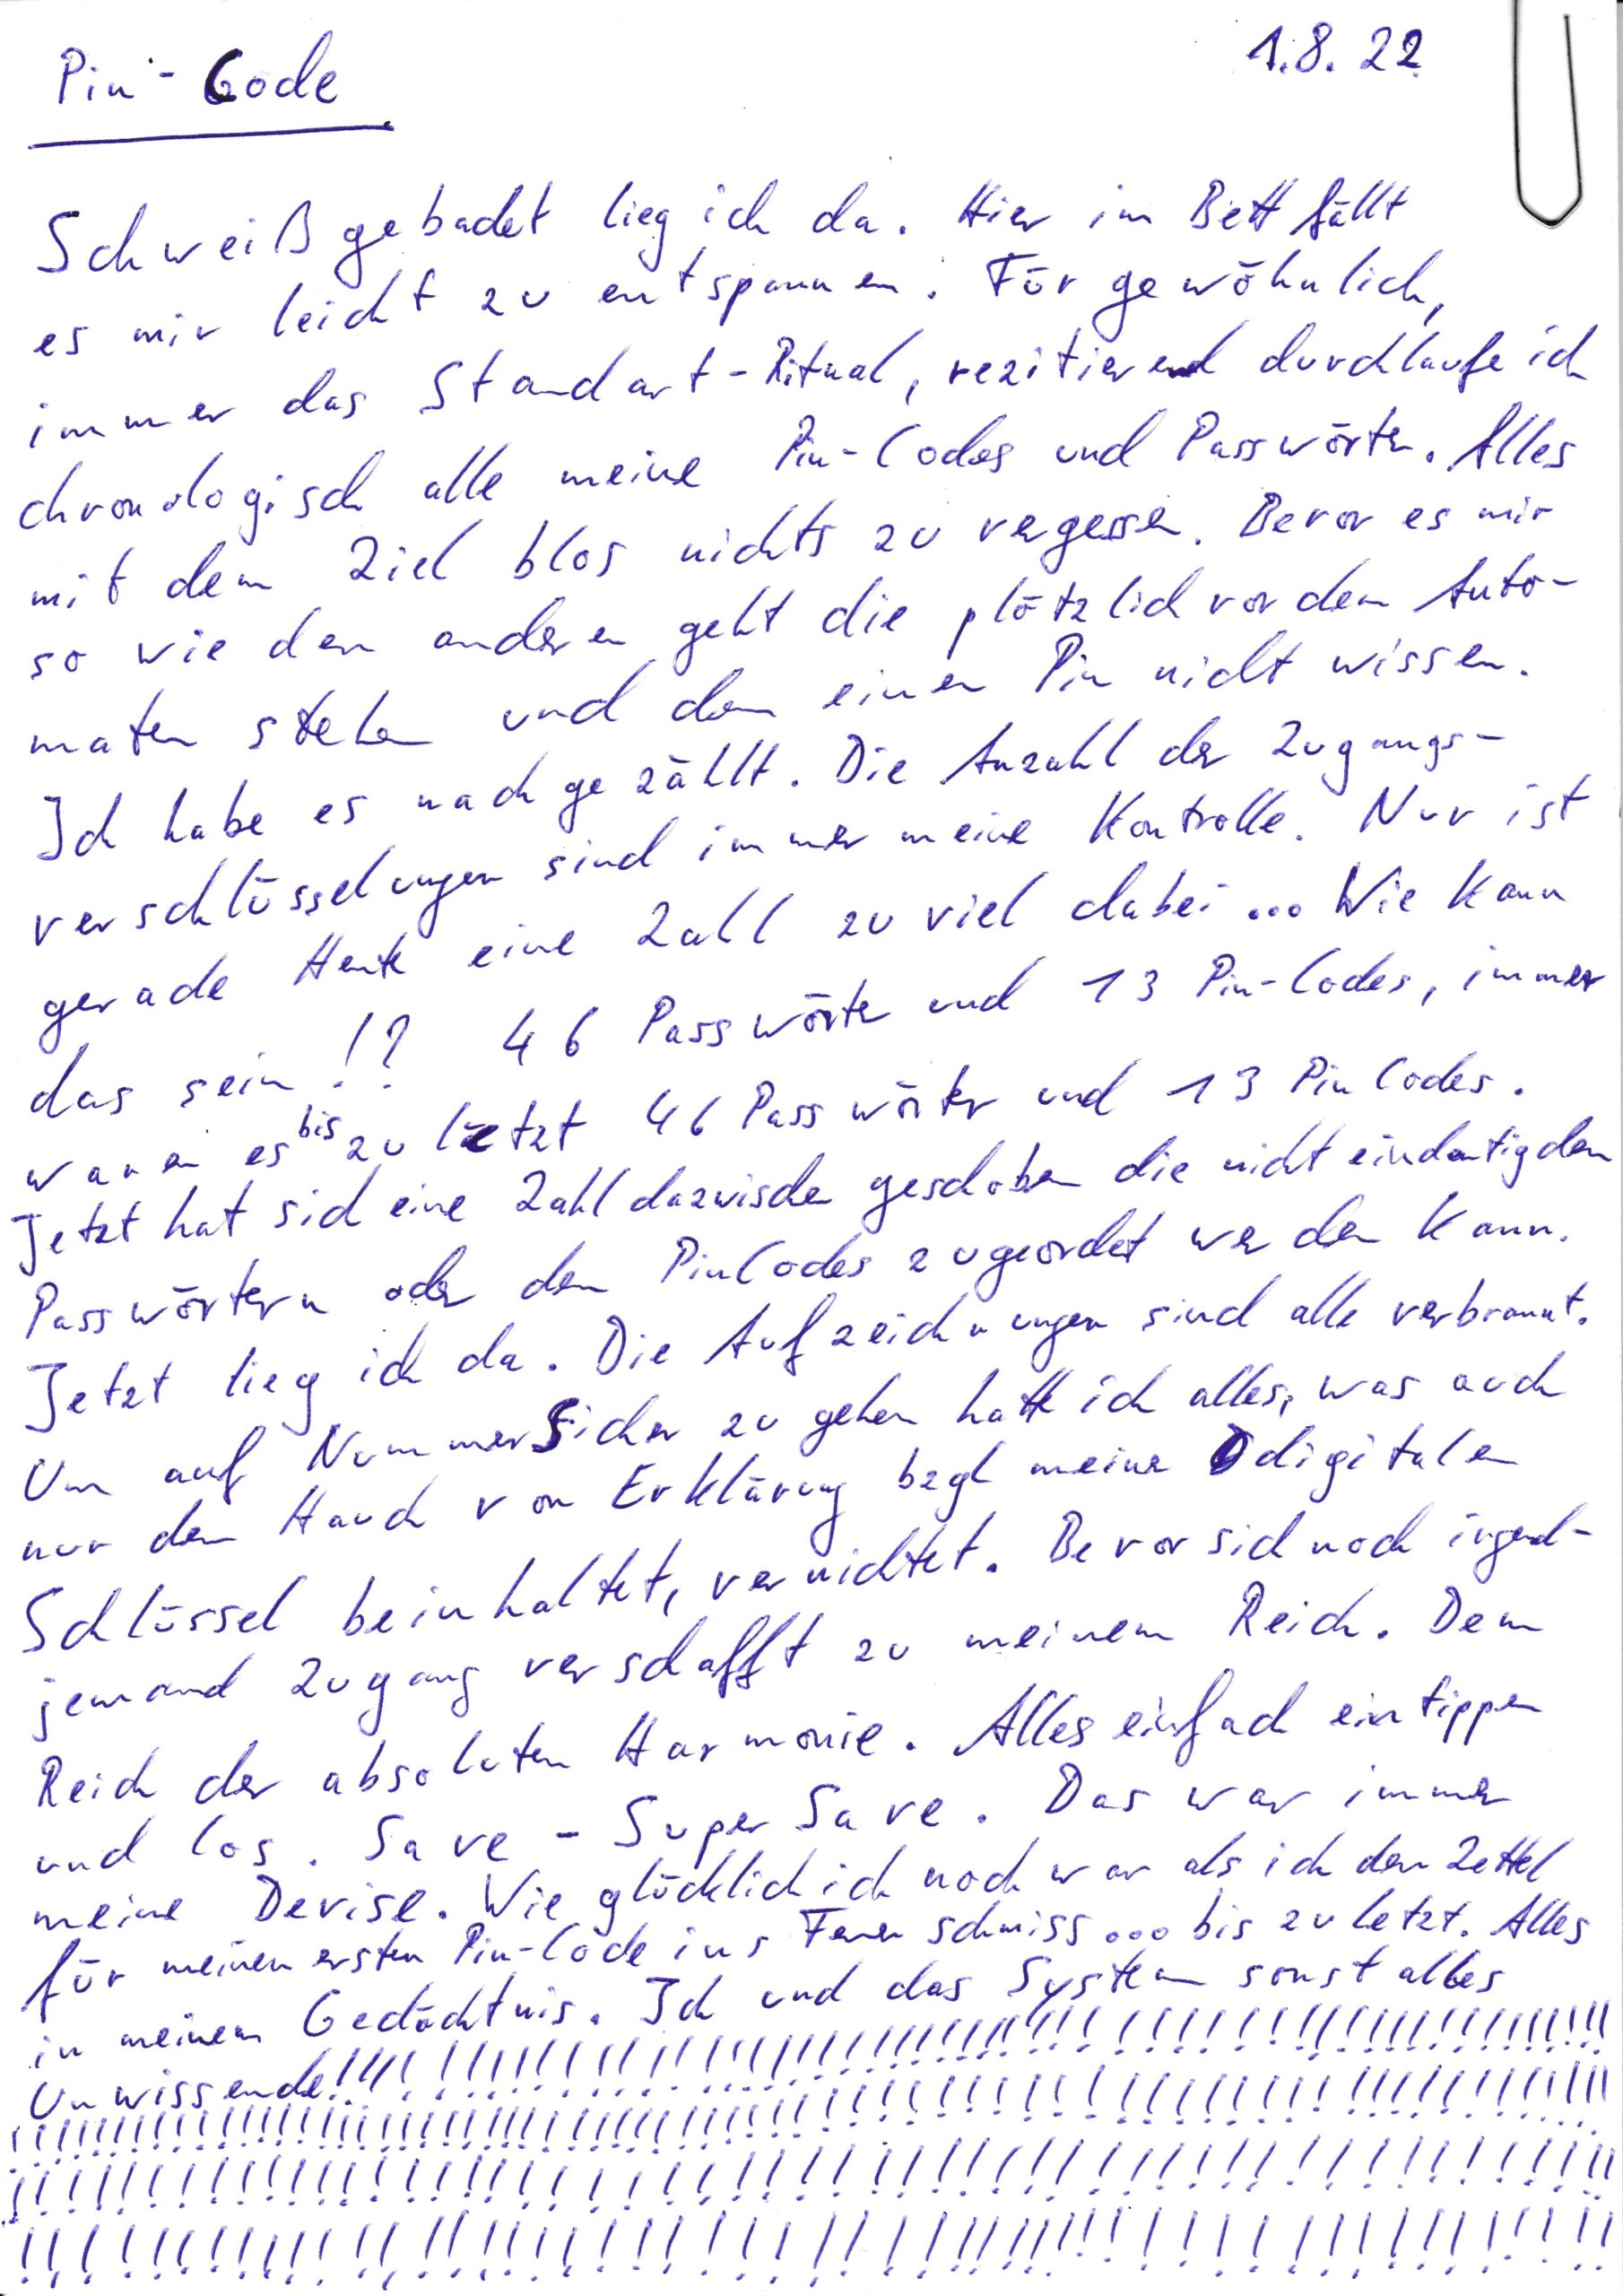 1.8.22
Pin-Code
Schweißgebadet lieg ich da. Hier im Bett fällt
es mir leicht zu entspannen. Für gewöhnlich,
immer das Standart-Ritual, rezitierend durchlaufe ich
chronologisch alle meine Pin-Codes und Passwörter. Alles
mit dem Ziel blos nichts zu vergessen. Bevor es mir
so wie den anderen geht die plötzlich vor dem Auto-
maten stehen und den einen Pin nicht wissen.
Ich habe es nachgezählt. Die Anzahl der Zugangs-
verschlüsselungen sind immer meine Kontrolle. Nur ist
gerade Heute eine Zahl zu viel dabei ... Wie kann
das sein!? 46 Passwörter und 13 Pin-Codes, immer
waren es bis zuletzt 46 Passwörter und 13 PinCodes.
Jetzt hat sich eine Zahl dazwischen geschoben die nicht eindeutig den
Passwörtern oder den PinCodes zugeordet werden kann.
Jetzt lieg ich da. Die Aufzeichnungen sind alle verbrannt.
Um auf Nummer Sicher zu gehen hatte ich alles, was auch
nur den Hauch von Erklärung bzgl meiner digitalen
Schlüssel beinhaltet, vernichtet. Bevor sich noch irgend-
jemand Zugang verschafft zu meinem Reich. Dem
Reich der absoluten Harmonie. Alles einfach eintippen
und los. Save - Super Save. Das war immer
meine Devise. Wie glücklich ich noch war als ich den Zettel
für meinen ersten Pin-Code ins Feuer schmiss ... bis zuletzt. Alles
in meinem Gedächtnis. Ich und das System sonst alles
Unwissende!!!!!!!!!!!!!!!!!!!!!!!!!!!!!!!!!!!!!!!!!!!!!!!!!!!!!!!!!!!!
!!!!!!!!!!!!!!!!!!!!!!!!!!!!!!!!!!!!!!!!!!!!!!!!!!!!!!!!!!!!!!!!!!!!
!!!!!!!!!!!!!!!!!!!!!!!!!!!!!!!!!!!!!!!!!!!!!!!!!!!!!!!!!!!!
!!!!!!!!!!!!!!!!!!!!!!!!!!!!!!!!!!!!!!!!!!!!!!!!!!!!!!!!!!!!